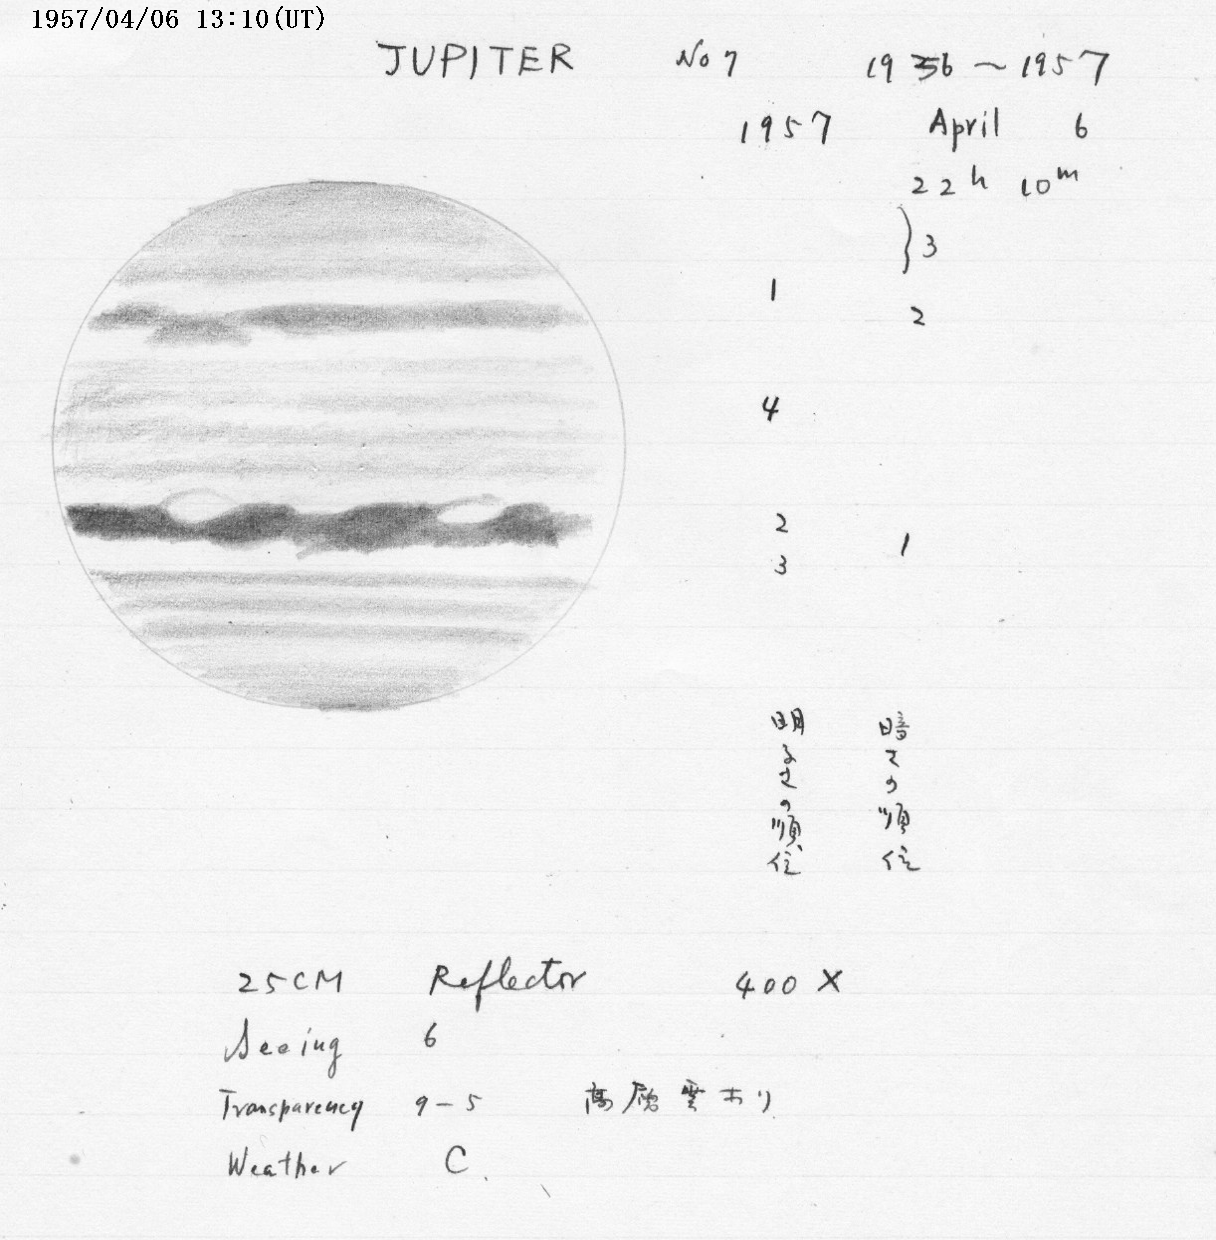 1957/04/06 13:10(UT)
JUPITER No 7 1956～1957
1957 April 6
22h 10m
}3
1
2
4
2
1
3
明るさの順位
暗さの順位
25CM Reflector 400 X
Seeing 6
Transparency 9-5 高層雲あり
Weather C.